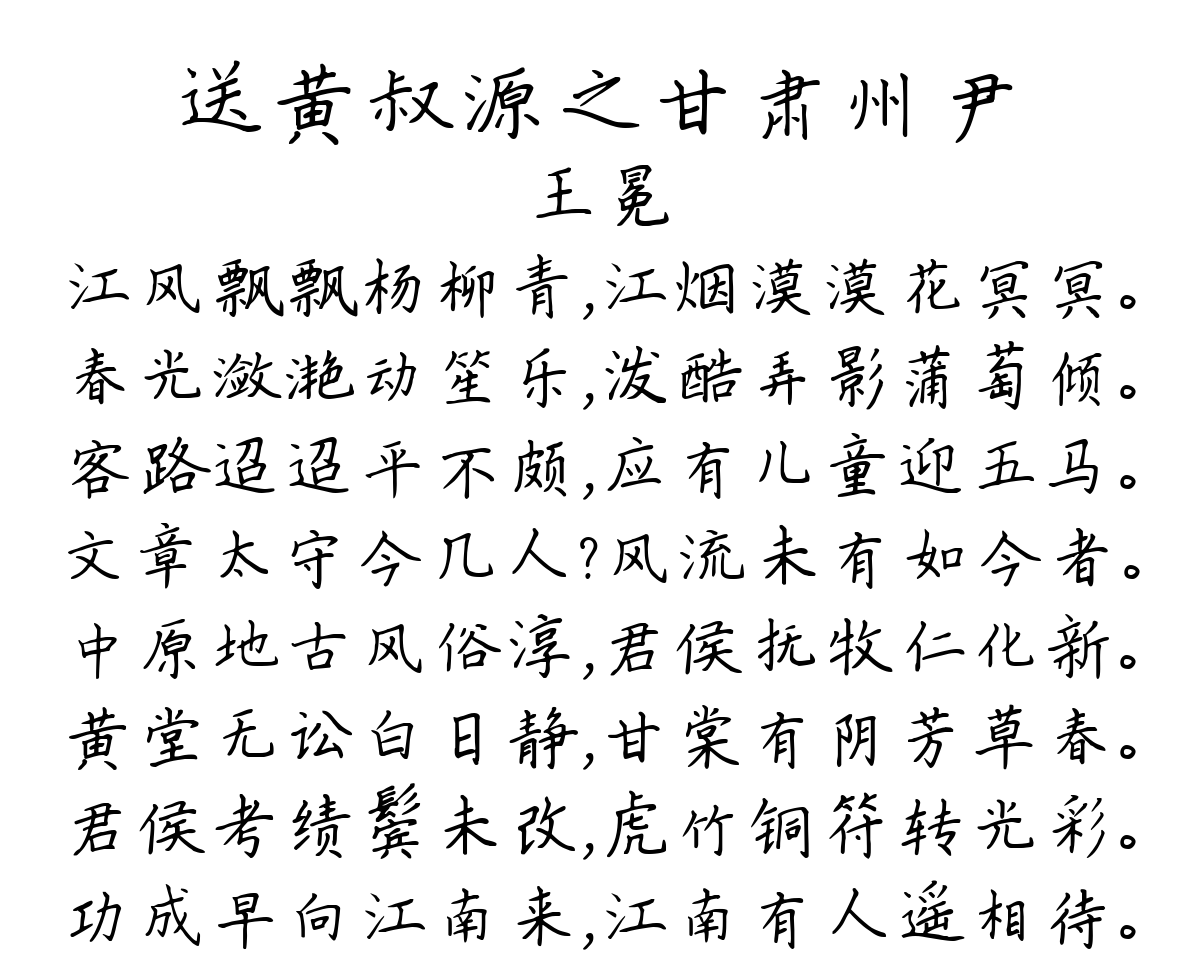 送黄叔源之甘肃州尹
王冕
江风飘飘杨柳青,江烟漠漠花冥冥。
春光潋滟动笙乐,泼酷弄影蒲萄倾。
客路迢迢平不颇,应有儿童迎五马。
文章太守今几人?风流未有如今者。
中原地古风俗淳,君侯抚牧仁化新。
黄堂无讼白日静,甘棠有阴芳草春。
君侯考绩鬓未改,虎竹铜符转光彩。
功成早向江南来,江南有人遥相待。